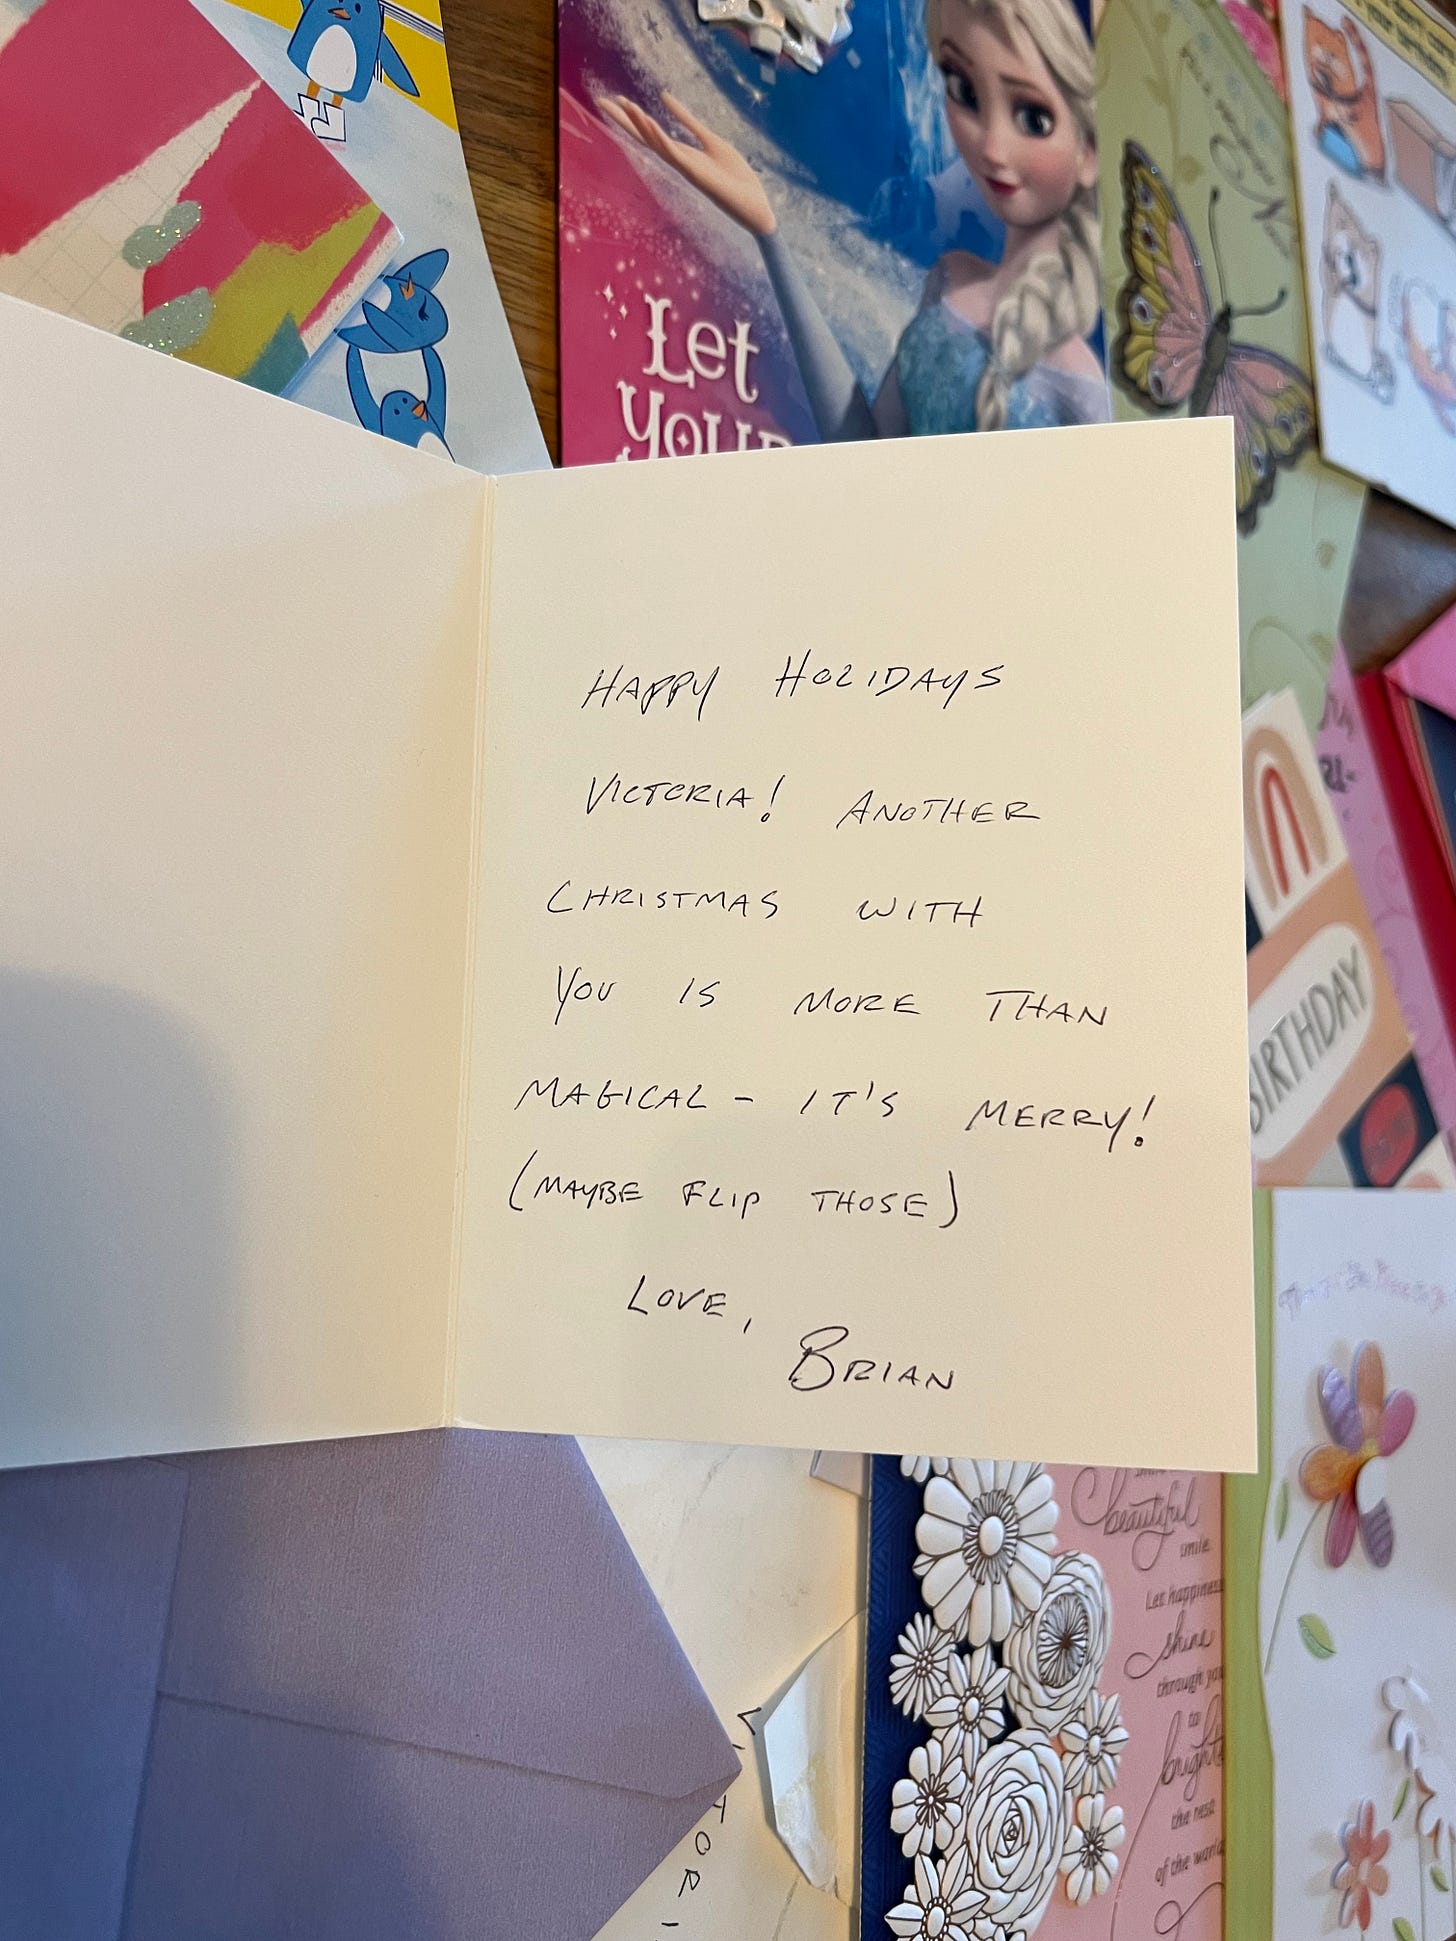 Let
YOUR
HAPPY HOLIDAYS
VICTORIA! ANOTHER
CHRISTMAS WITH
YOU IS MORE THAN
MAGICAL - IT'S MERRY!
(MAYBE FLIP THOSE)
LOVE,
BRIAN
BIRTHDAY
beautiful
smile.
Let happiness
shine
through you
to
the rest
of the world